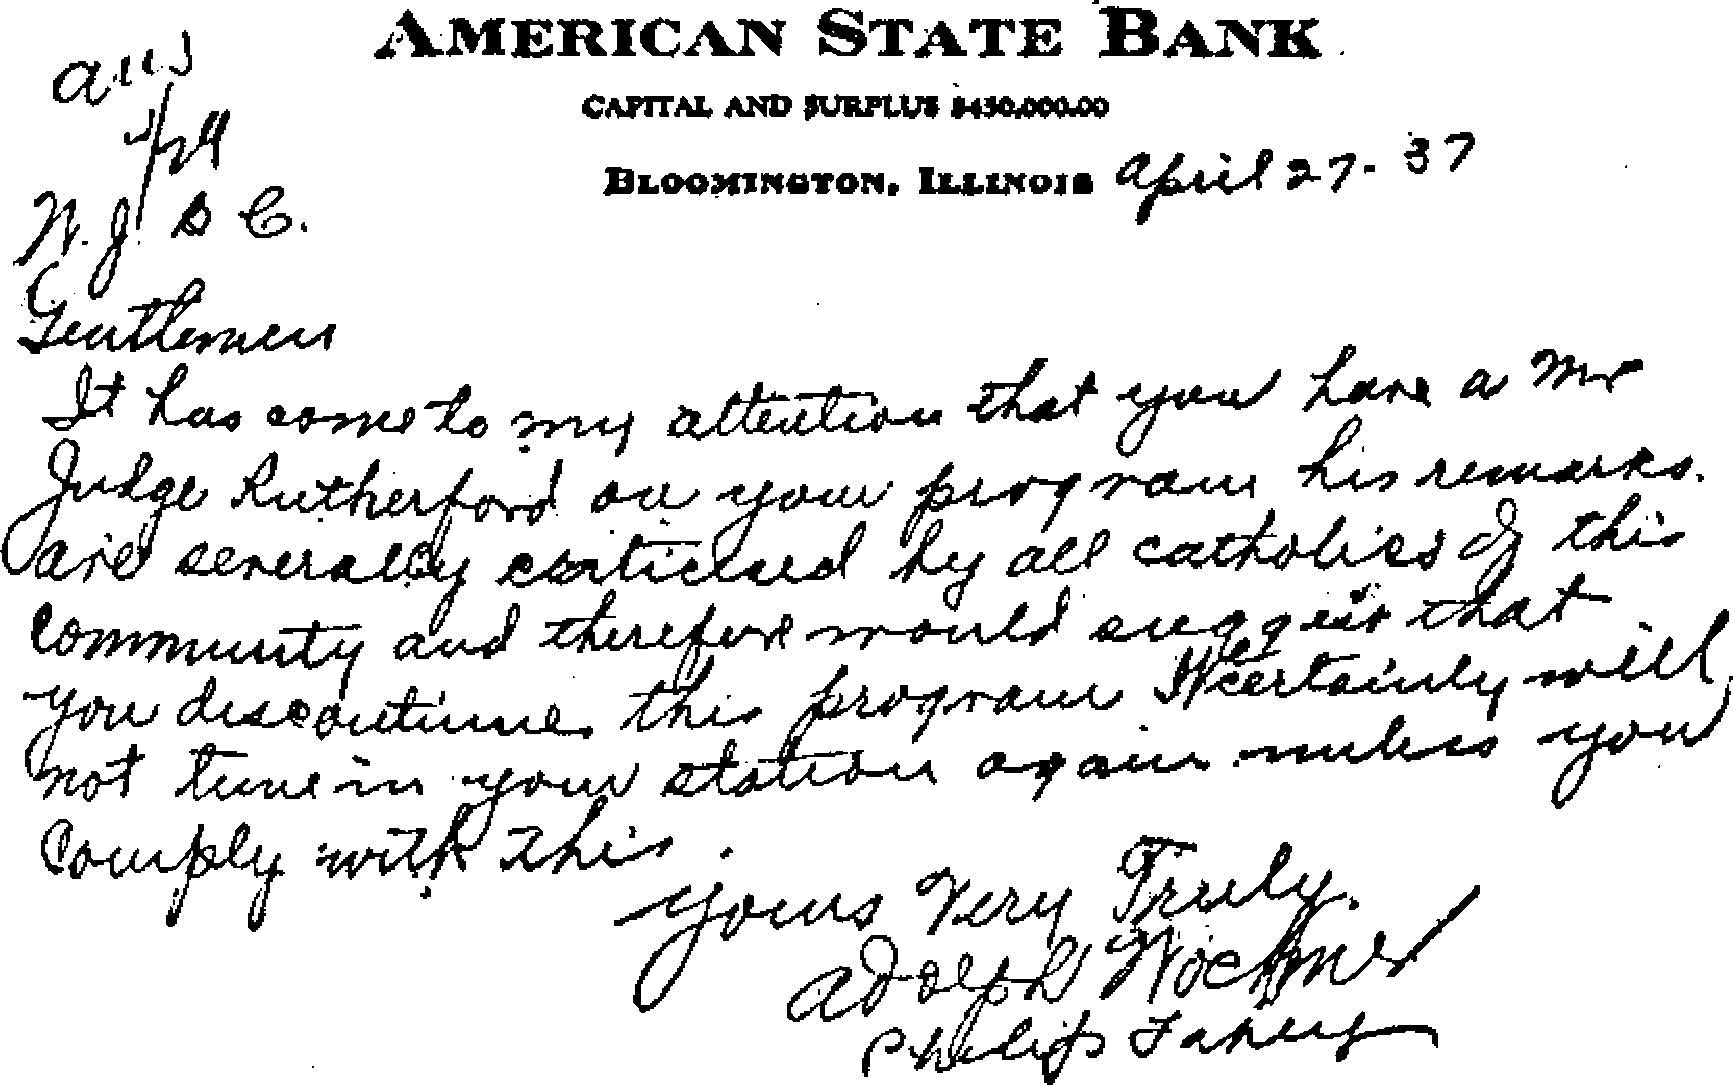 AMERICAN STATE BANK
CAPITAL AND SURPLUS $450,000.00
BLOOMINGTON, ILLINOIS April 27-37
ans
W.J.B.C.
Gentlemen
It has come to my attention that you have a Mr
Judge Rutherford on your program his remarks.
are severally criticised by all catholics of this
community and therefore would suggest that
you discontinue this program We certainly will
not tune in your station again unless you
comply with this.
Yours Very Truly.
Adolph
Philip Fahey